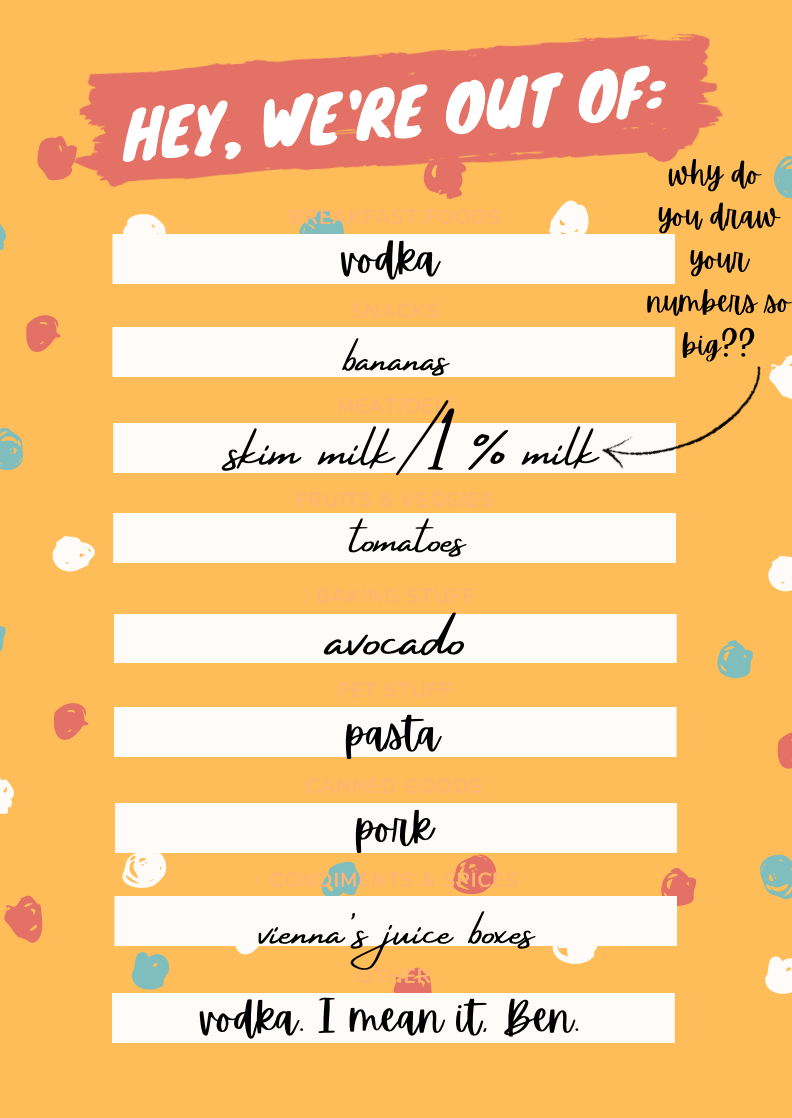 HEY, WE'RE OUT OF:
why do
you draw
your
numbers so
big??
BREAKFAST FOODS
vodka
SNACKS
bananas
MEAT/DELI
skim milk/1% milk
FRUITS & VEGGIES
tomatoes
BAKING STUFF
avocado
PET STUFF
pasta
CANNED GOODS
pork
CONDIMENTS & SPICES
vienna's juice boxes
OTHER
vodka. I mean it, Ben.